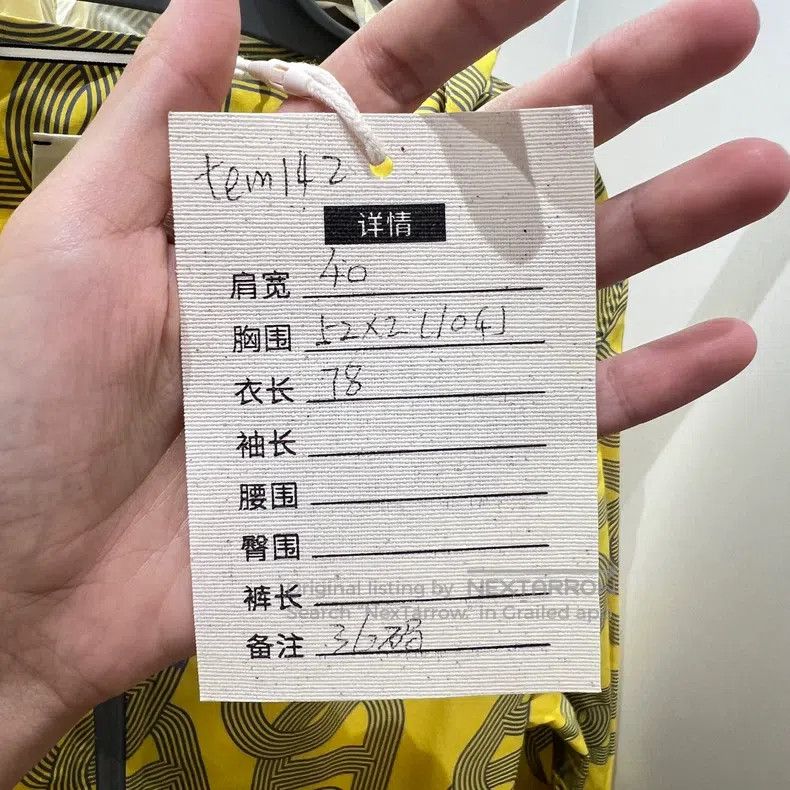 tem142
详情
肩宽 40
胸围 52×2(104)
衣长 78
袖长
腰围
臀围
裤长
备注 36码
Original listing by NEXTARROW
Search "NexTarrow." in Grailed app